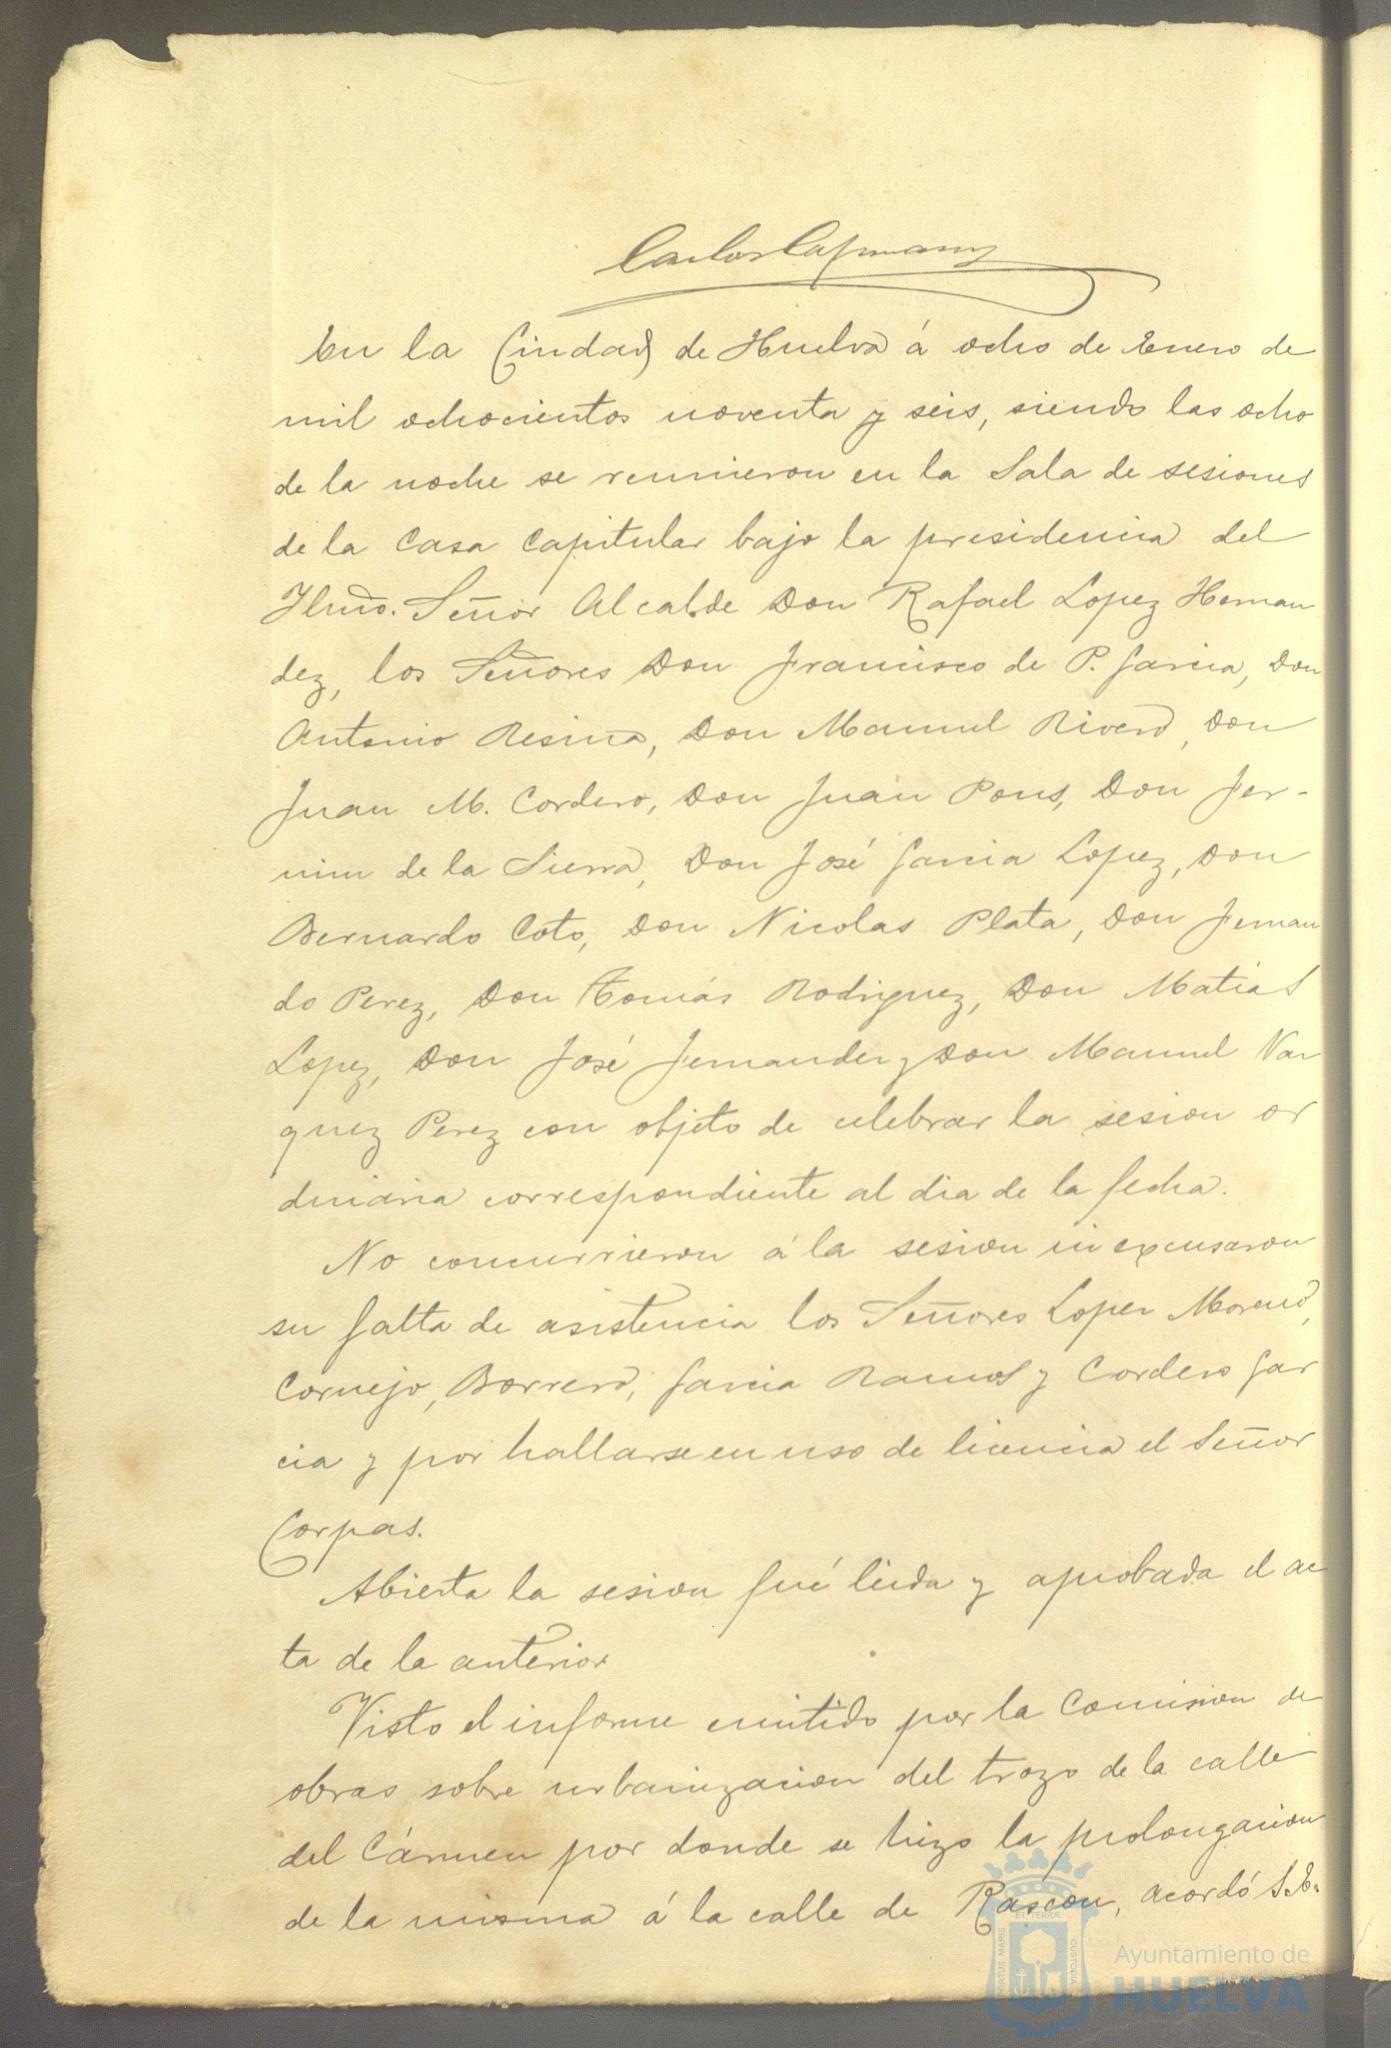 Carlos Capmany
En la Ciudad de Huelva á ocho de Enero de
mil ochocientos noventa y seis, siendo las ocho
de la noche se reunieron en la Sala de sesiones
de la Casa Capitular bajo la presidencia del
Ylmo. Señor Alcalde Don Rafael Lopez Hernan
dez, los Señores Don Francisco de P. Garcia, Don
Antonio Resina, Don Manuel Rivero, Don
Juan M. Cordero, Don Juan Pons, Don Fer-
min de la Sierra, Don José Garcia Lopez, Don
Bernardo Coto, Don Nicolas Plata, Don Fernan
do Perez, Don Tomás Rodriguez, Don Matias
Lopez, Don José Fernandez y Don Manuel Vaz
quez Perez con objeto de celebrar la sesion or
dinaria correspondiente al dia de la fecha.
No concurrieron á la sesion ni excusaron
su falta de asistencia los Señores Lopez Moreno,
Cornejo, Borrero, Garcia Ramos y Cordero Gar
cia y por hallarse en uso de licencia el Señor
Corpas.
Abierta la sesion fué leida y aprobada el ac
ta de la anterior
Visto el informe emitido por la Comision de
obras sobre urbanizacion del trozo de la calle
del Cármen por donde se hizo la prolongacion
de la misma á la calle de Rascon, acordó S.E.
PORTUS MARIS ET TERRA CUSTODIA
Ayuntamiento de
HUELVA